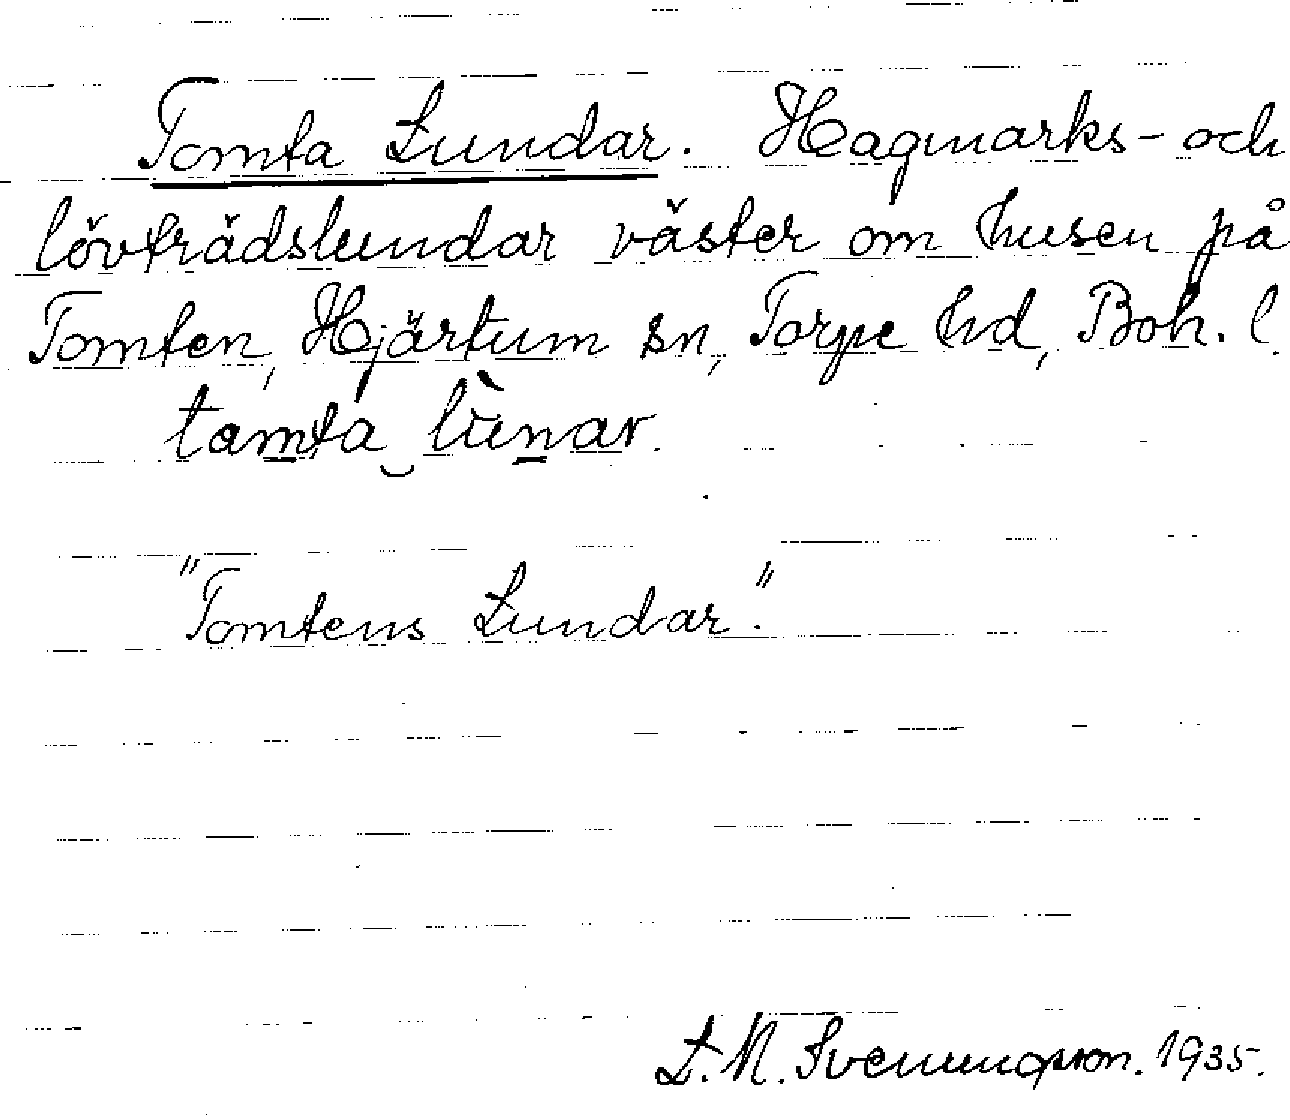 Tomta Lundar. Hagmarks- och
lövträdslundar väster om husen på
Tomten, Hjärtum sn, Torpe hd, Boh. l.
tamta lùnar.
"Tomtens Lundar."
L. M. Svenungsson. 1935.